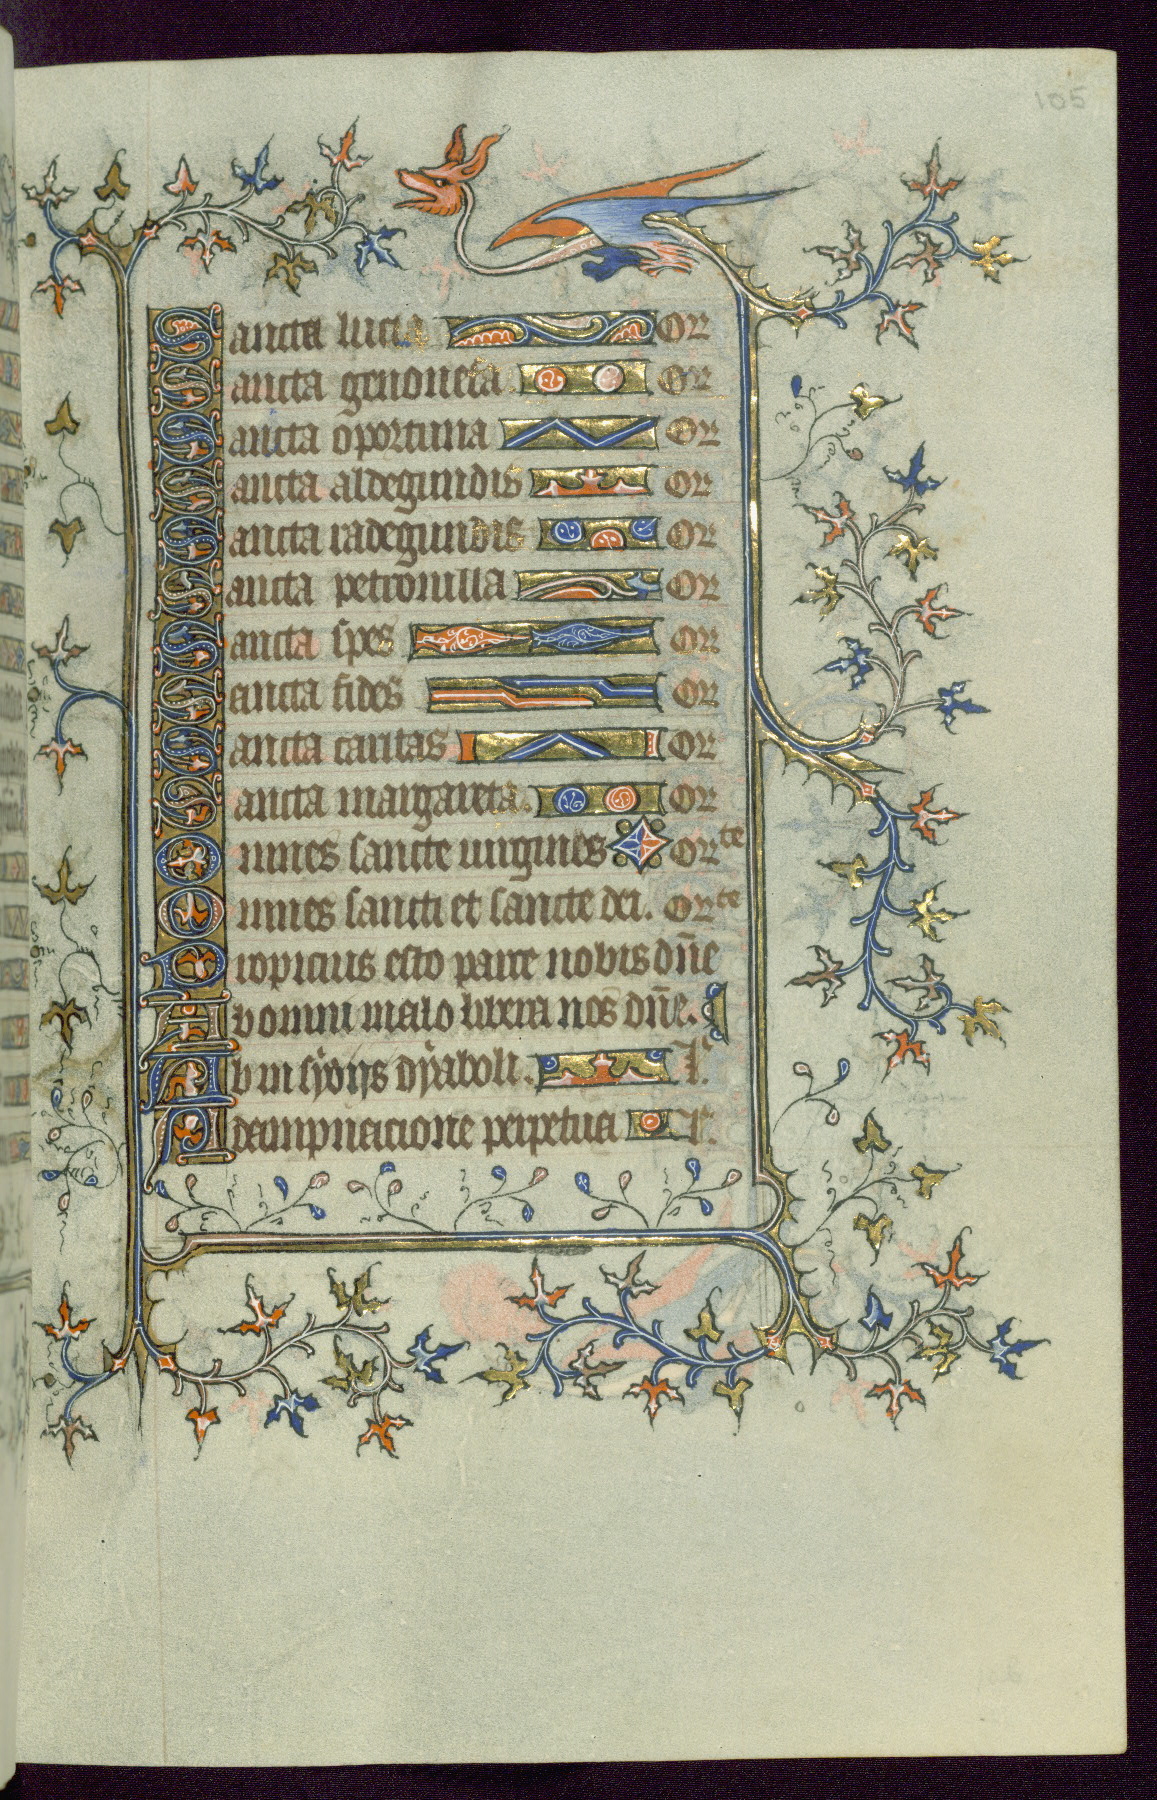 105
Sancta lucia Or
Sancta genouefa Or
Sancta oportuna Or
Sancta aldegundis Or
Sancta radegundis Or
Sancta petronilla Or
Sancta spes Or
Sancta fides Or
Sancta caritas Or
Sancta margareta. Or
Omnes sancte uirgines Orte
Omnes sancti et sancte dei. Orte
Propicius esto parce nobis dn̄e
Ab omni malo libera nos dn̄e.
Ab insydijs dyaboli. l'.
A dampnacione perpetua l'.